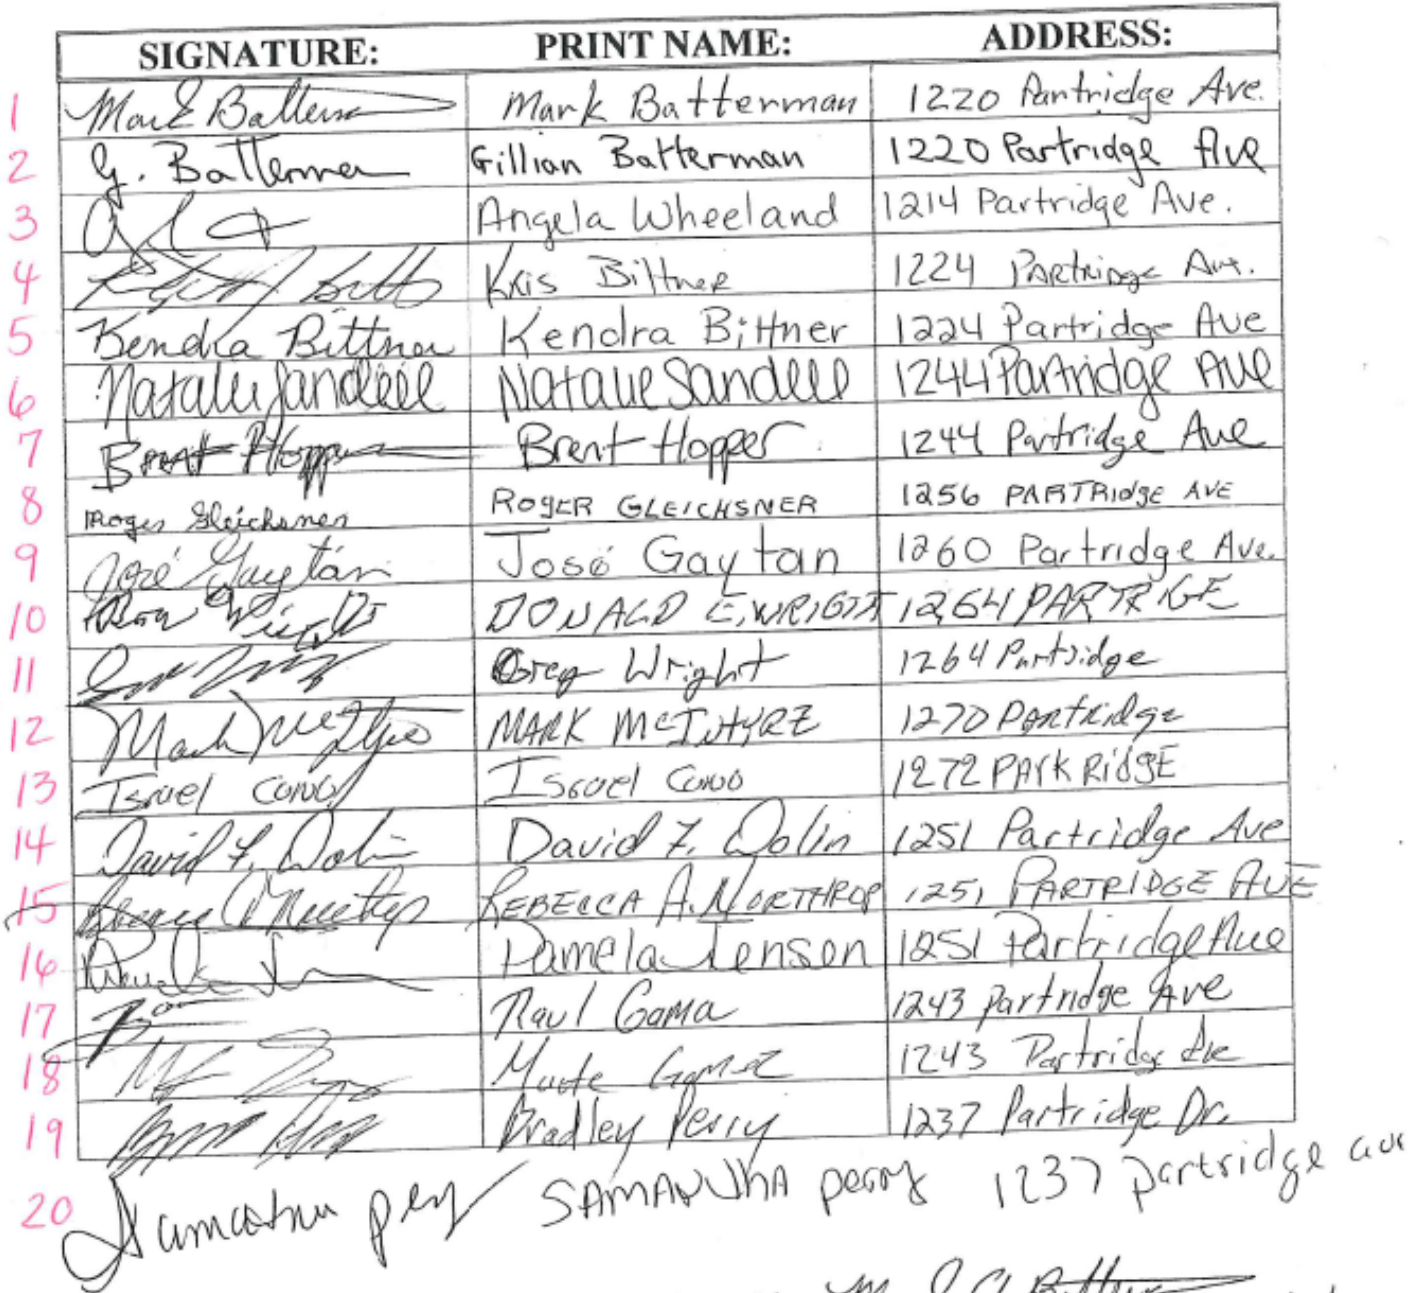 SIGNATURE: PRINT NAME: ADDRESS:
1 Mark Batterman Mark Batterman 1220 Partridge Ave.
2 G. Batterman Gillian Batterman 1220 Partridge Ave
3 Angela Wheeland 1214 Partridge Ave.
4 Kris Bittner 1224 Partridge Ave.
5 Kendra Bittner Kendra Bittner 1224 Partridge Ave
6 Natalie Sandell Natalie Sandell 1244 Partridge Ave
7 Brent Hopper Brent Hopper 1244 Partridge Ave
8 Roger Gleichsner ROGER GLEICHSNER 1256 PARTRIDGE AVE
9 José Gaytán José Gaytan 1260 Partridge Ave.
10 Don Wright DONALD E. WRIGHT 1264 PARTRIGE
11 Greg Wright 1264 Partridge
12 Mark McIntyre MARK McINTYRE 1270 Partridge
13 Israel Israel 1272 PARKRIDGE
14 David F. Dolin David F. Dolin 1251 Partridge Ave
15 REBECCA A. NORTHROP 1251 PARTRIDGE AVE
16 Pamela Jensen 1251 Partridge Ave
17 Raul Gama 1243 partridge Ave
18 1243 Partridge Ave
19 Bradley Perry 1237 Partridge Dr.
20 Samantha perry SAMANTHA perry 1237 partridge ave